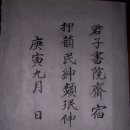 君子書院齋宿
押韻民紳類珉伸
庚寅九月 日